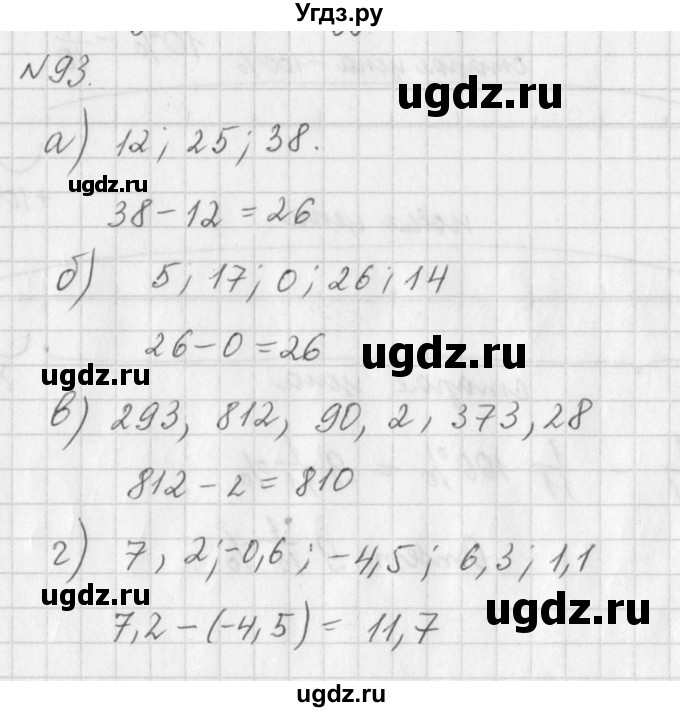 Угдз.ру
№93.
ugdz.ru
а) 12; 25; 38.
ugdz.ru
38 - 12 = 26
б) 5; 17; 0; 26; 14
26 - 0 = 26
ugdz.ru
ugdz.ru
в) 293, 812, 90, 2, 373, 28
812 - 2 = 810
г) 7, 2; -0,6; -4,5; 6,3; 1,1
ugdz.ru
ugdz.ru
7,2 - (-4,5) = 11,7
ugdz.ru